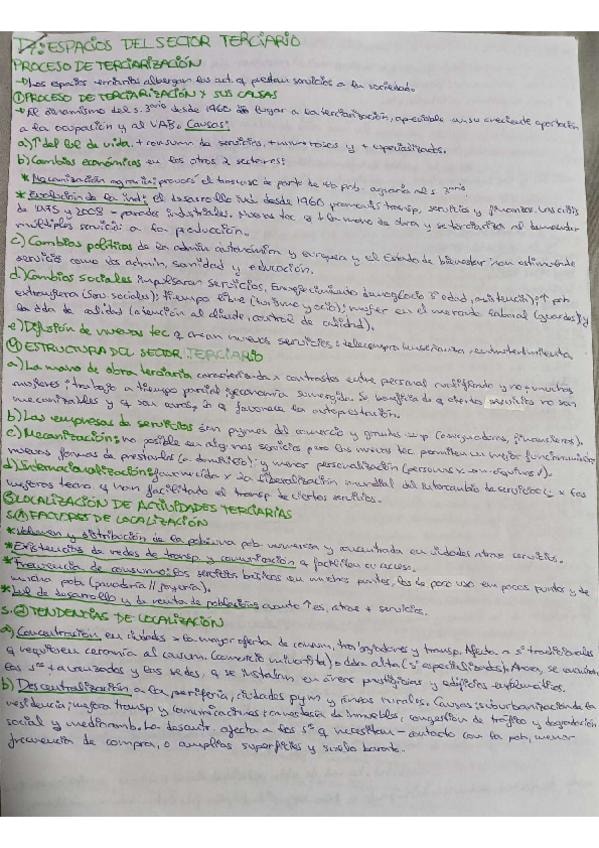 D7: ESPACIOS DEL SECTOR TERCIARIO
PROCESO DE TERCIARIZACIÓN
→ Los espacios terciarios albergan las act. q prestan servicios a la sociedad.
① PROCESO DE TERCIARIZACIÓN Y SUS CAUSAS
→ Al dinamismo del s. 3ario desde 1960 lugar a la terciarización, apreciable en su creciente aportación
a la ocupación y al VAB. Causas:
a) ↑ del lvl de vida, + consumo de servicios, + numerosos y + especializados.
b) Cambios económicos en los otros 2 sectores:
* Mecanización agraria: provocó el trasvase de parte de pob. agraria al s. 3ario
* Evolución de la ind: el desarrollo ind. desde 1960 transp, servicios y finanzas. Las crisis
de 1975 y 2008 - parados industriales. Nuevas tec. q ↓ la mano de obra y se terciariza al demandar
múltiples servicios a la producción.
c) Cambios políticos de la admin autonómica y europea y el Estado de bienestar han estimulado
servicios como los admin, sanidad y educación.
d) Cambios sociales impulsaron servicios. Envejecimiento demográfico (3ª edad, asistencia); ↑ pob
extranjera (serv. sociales); tiempo libre (turismo y ocio); mujer en el mercado laboral (guardes) y
la dda de calidad (atención al cliente, control de calidad).
e) Difusión de nuevas tec q crean nuevos servicios: telecompra,
④ ESTRUCTURA DEL SECTOR TERCIARIO
a) La mano de obra terciaria caracterizada x contrastes entre personal cualificado y no; muchas
mujeres; trabajo a tiempo parcial y economía sumergida. Se beneficia de q ciertos servicios no son
mecanizables y q son caros, lo q favorece la autoprestación.
b) Las empresas de servicios son pymes del comercio y grandes emp (aseguradoras, financieras).
c) Mecanización: no posible en algunos servicios pero las nuevas tec. permiten un mejor funcionamiento,
nuevas formas de prestarlos (a domicilio); y menor personalización (personas x).
d) Internacionalización: favorecida x la liberalización mundial del intercambio de servicios y x las
mejoras tecno. q han facilitado el transp de ciertos servicios.
⑤ LOCALIZACIÓN DE ACTIVIDADES TERCIARIAS
5.① FACTORES DE LOCALIZACIÓN
* Volumen y distribución de la pob: una pob. numerosa y concentrada en ciudades atrae servicios.
* Existencias de redes de transp y comunicación q faciliten su acceso.
* Frecuencia de consumo: los servicios básicos en muchos puntos, los de poco uso en pocos puntos y de
mucha pob (panadería // joyería).
* Lvl de desarrollo y de renta de población: cuanto ↑ es, atrae + servicios.
5.② TENDENCIAS DE LOCALIZACIÓN
a) Concentración en ciudades x la mayor oferta de consum, trabajadores y transp. Afecta a sº tradicionales
q requieren cercanía al consum. (comercio minorista) o dda alta (sº especializados). Ahora, se concentran
los sos + avanzados y las sedes, q se instalan en áreas prestigiosas y edificios emblemáticos.
b) Descentralización a la periferia, ciudades peq y m y áreas rurales. Causas: suburbanización de la
residencia; mejora transp y comunicaciones + carestía de inmuebles, congestión de tráfico y degradación
social y medioamb. La descent. afecta a los sos q necesitan - contacto con la pob, menor
frecuencia de compra, o amplias superficies y suelo barato.